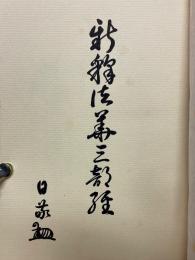 新釋法華三部経
日敬